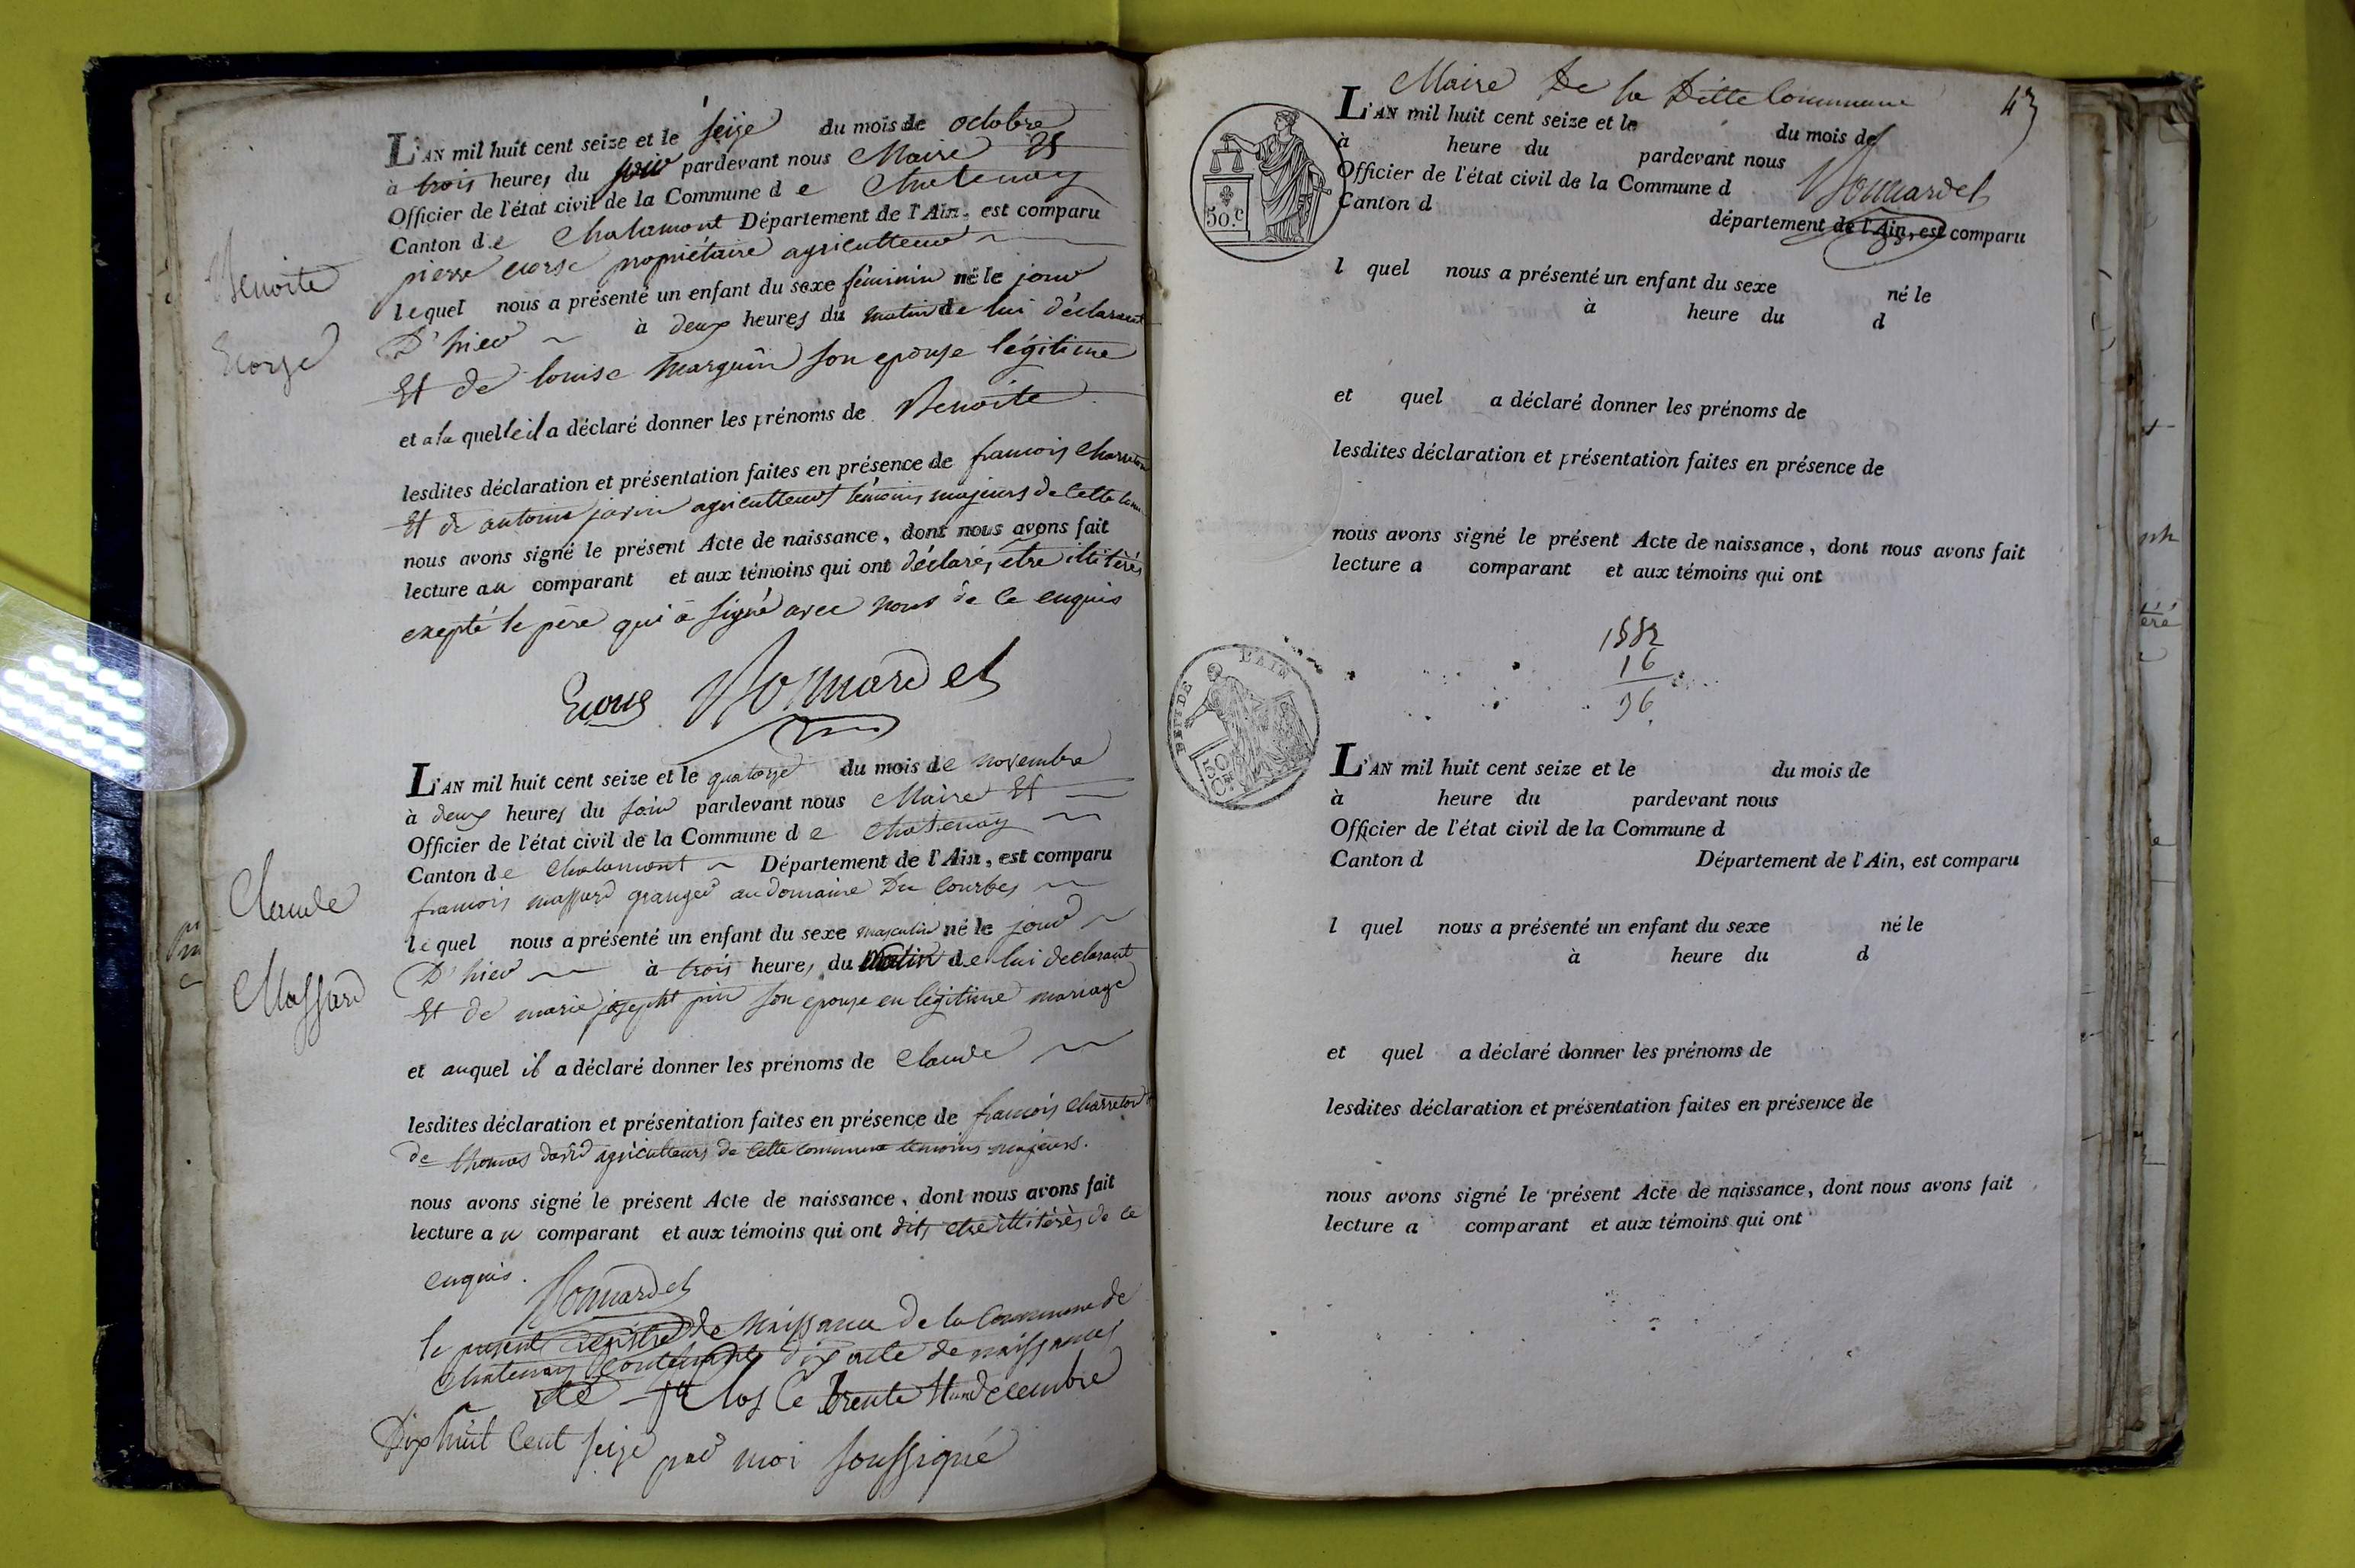 L'AN mil huit cent seize et le seize du mois de octobre
à trois heures du soir pardevant nous Maire Et
Officier de l'état civil de la Commune de Chatenay
Canton de Chalamont Département de l'Ain, est comparu
pierre propriétaire agriculteur
Benoite
lequel nous a présenté un enfant du sexe féminin né le jour
D'hier à deux heures du matin de lui déclarant
Et de louise Marguin son epouse légitime
et a la quelle il a déclaré donner les prénoms de Benoite
lesdites déclaration et présentation faites en présence de francois Charreton
Et de antoine javin agriculteurs témoins majeurs de Cette
nous avons signé le présent Acte de naissance, dont nous avons fait
lecture au comparant et aux témoins qui ont déclarés être illitérés
exepté le père qui a signé avec nous de ce enquis
L'AN mil huit cent seize et le quatorze du mois de novembre
à deux heures du soir pardevant nous Maire Et
Officier de l'état civil de la Commune de Chatenay
Canton de Chalamont Département de l'Ain, est comparu
francois massard granger au domaine Du Courbes
Claude
Massard
lequel nous a présenté un enfant du sexe masculin né le jour
D'hier à trois heures du Matin de lui declarant
Et de marie josepht pin son epouse en légitime mariage
et auquel il a déclaré donner les prénoms de Claude
lesdites déclaration et présentation faites en présence de francois Charreton
de thomas david agriculteurs de Cette commune temoins majeurs.
nous avons signé le présent Acte de naissance, dont nous avons fait
lecture au comparant et aux témoins qui ont dits etre illitérés de ce
enquis.
le present registre de Naissance de la Commune de
Chatenay contenant dix acte de naissances
été Clos Ce trente Un decembre
Dix huit Cent seize par moi soussigné
Maire De la Ditte Commune
43
L'AN mil huit cent seize et le du mois de
à heure du pardevant nous
Officier de l'état civil de la Commune d
Canton d département de l'Ain, est comparu
50.c
l quel nous a présenté un enfant du sexe né le
à heure du d
et quel a déclaré donner les prénoms de
lesdites déclaration et présentation faites en présence de
nous avons signé le présent Acte de naissance, dont nous avons fait
lecture a comparant et aux témoins qui ont
16
L'AN mil huit cent seize et le du mois de
à heure du pardevant nous
Officier de l'état civil de la Commune d
Canton d Département de l'Ain, est comparu
l quel nous a présenté un enfant du sexe né le
à heure du d
et quel a déclaré donner les prénoms de
lesdites déclaration et présentation faites en présence de
nous avons signé le présent Acte de naissance, dont nous avons fait
lecture a comparant et aux témoins qui ont